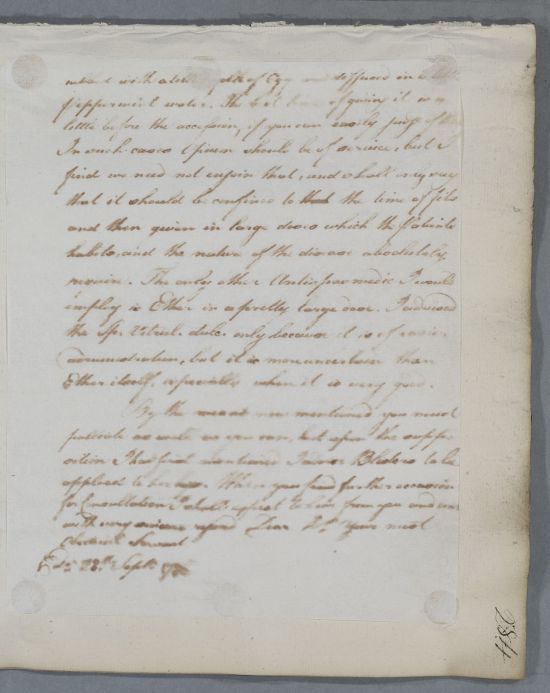 with a little yolk of Egg and diffused in a little
peppermint water. The best time of giving it is a
little before the accession, if you can easily judge of this
In such cases Opium should be of service, but I
find we need not enjoin that, and shall only say
that it should be confined to the time of fits
and then given in large doses which the Patients
habits, and the nature of the disease absolutely
require. The only other Antispasmodic I would
employ is Ether in a pretty large dose. I advised
the Sp. Vitriol. dulc. only because it is of easier
administration, but it is more uncertain than
Ether itself, especially when it is very good.
By the means now mentioned you must
palliate as well as you can, but upon the supp-
osition I had first mentioned I advise Blisters to be
applied to her. When you find further occasion
for Consultation I shall expect to hear from you and am
with very sincere regard Dear Sr. Your most
Obedient Servant
Edr. 28th Septr.